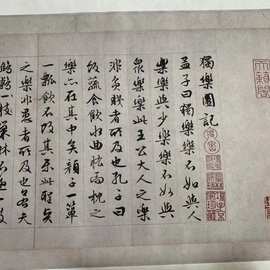 獨樂園記
孟子曰獨樂樂不如與人
樂樂與少樂樂不如與
眾樂樂此王公大人之樂
非貧賤者所及也孔子曰
飯蔬食飲水曲肱而枕之
樂亦在其中矣顏子一簞
一瓢飲不改其樂此聖賢
之樂非愚者所及也若夫
鷦鷯一枝巢林不過一